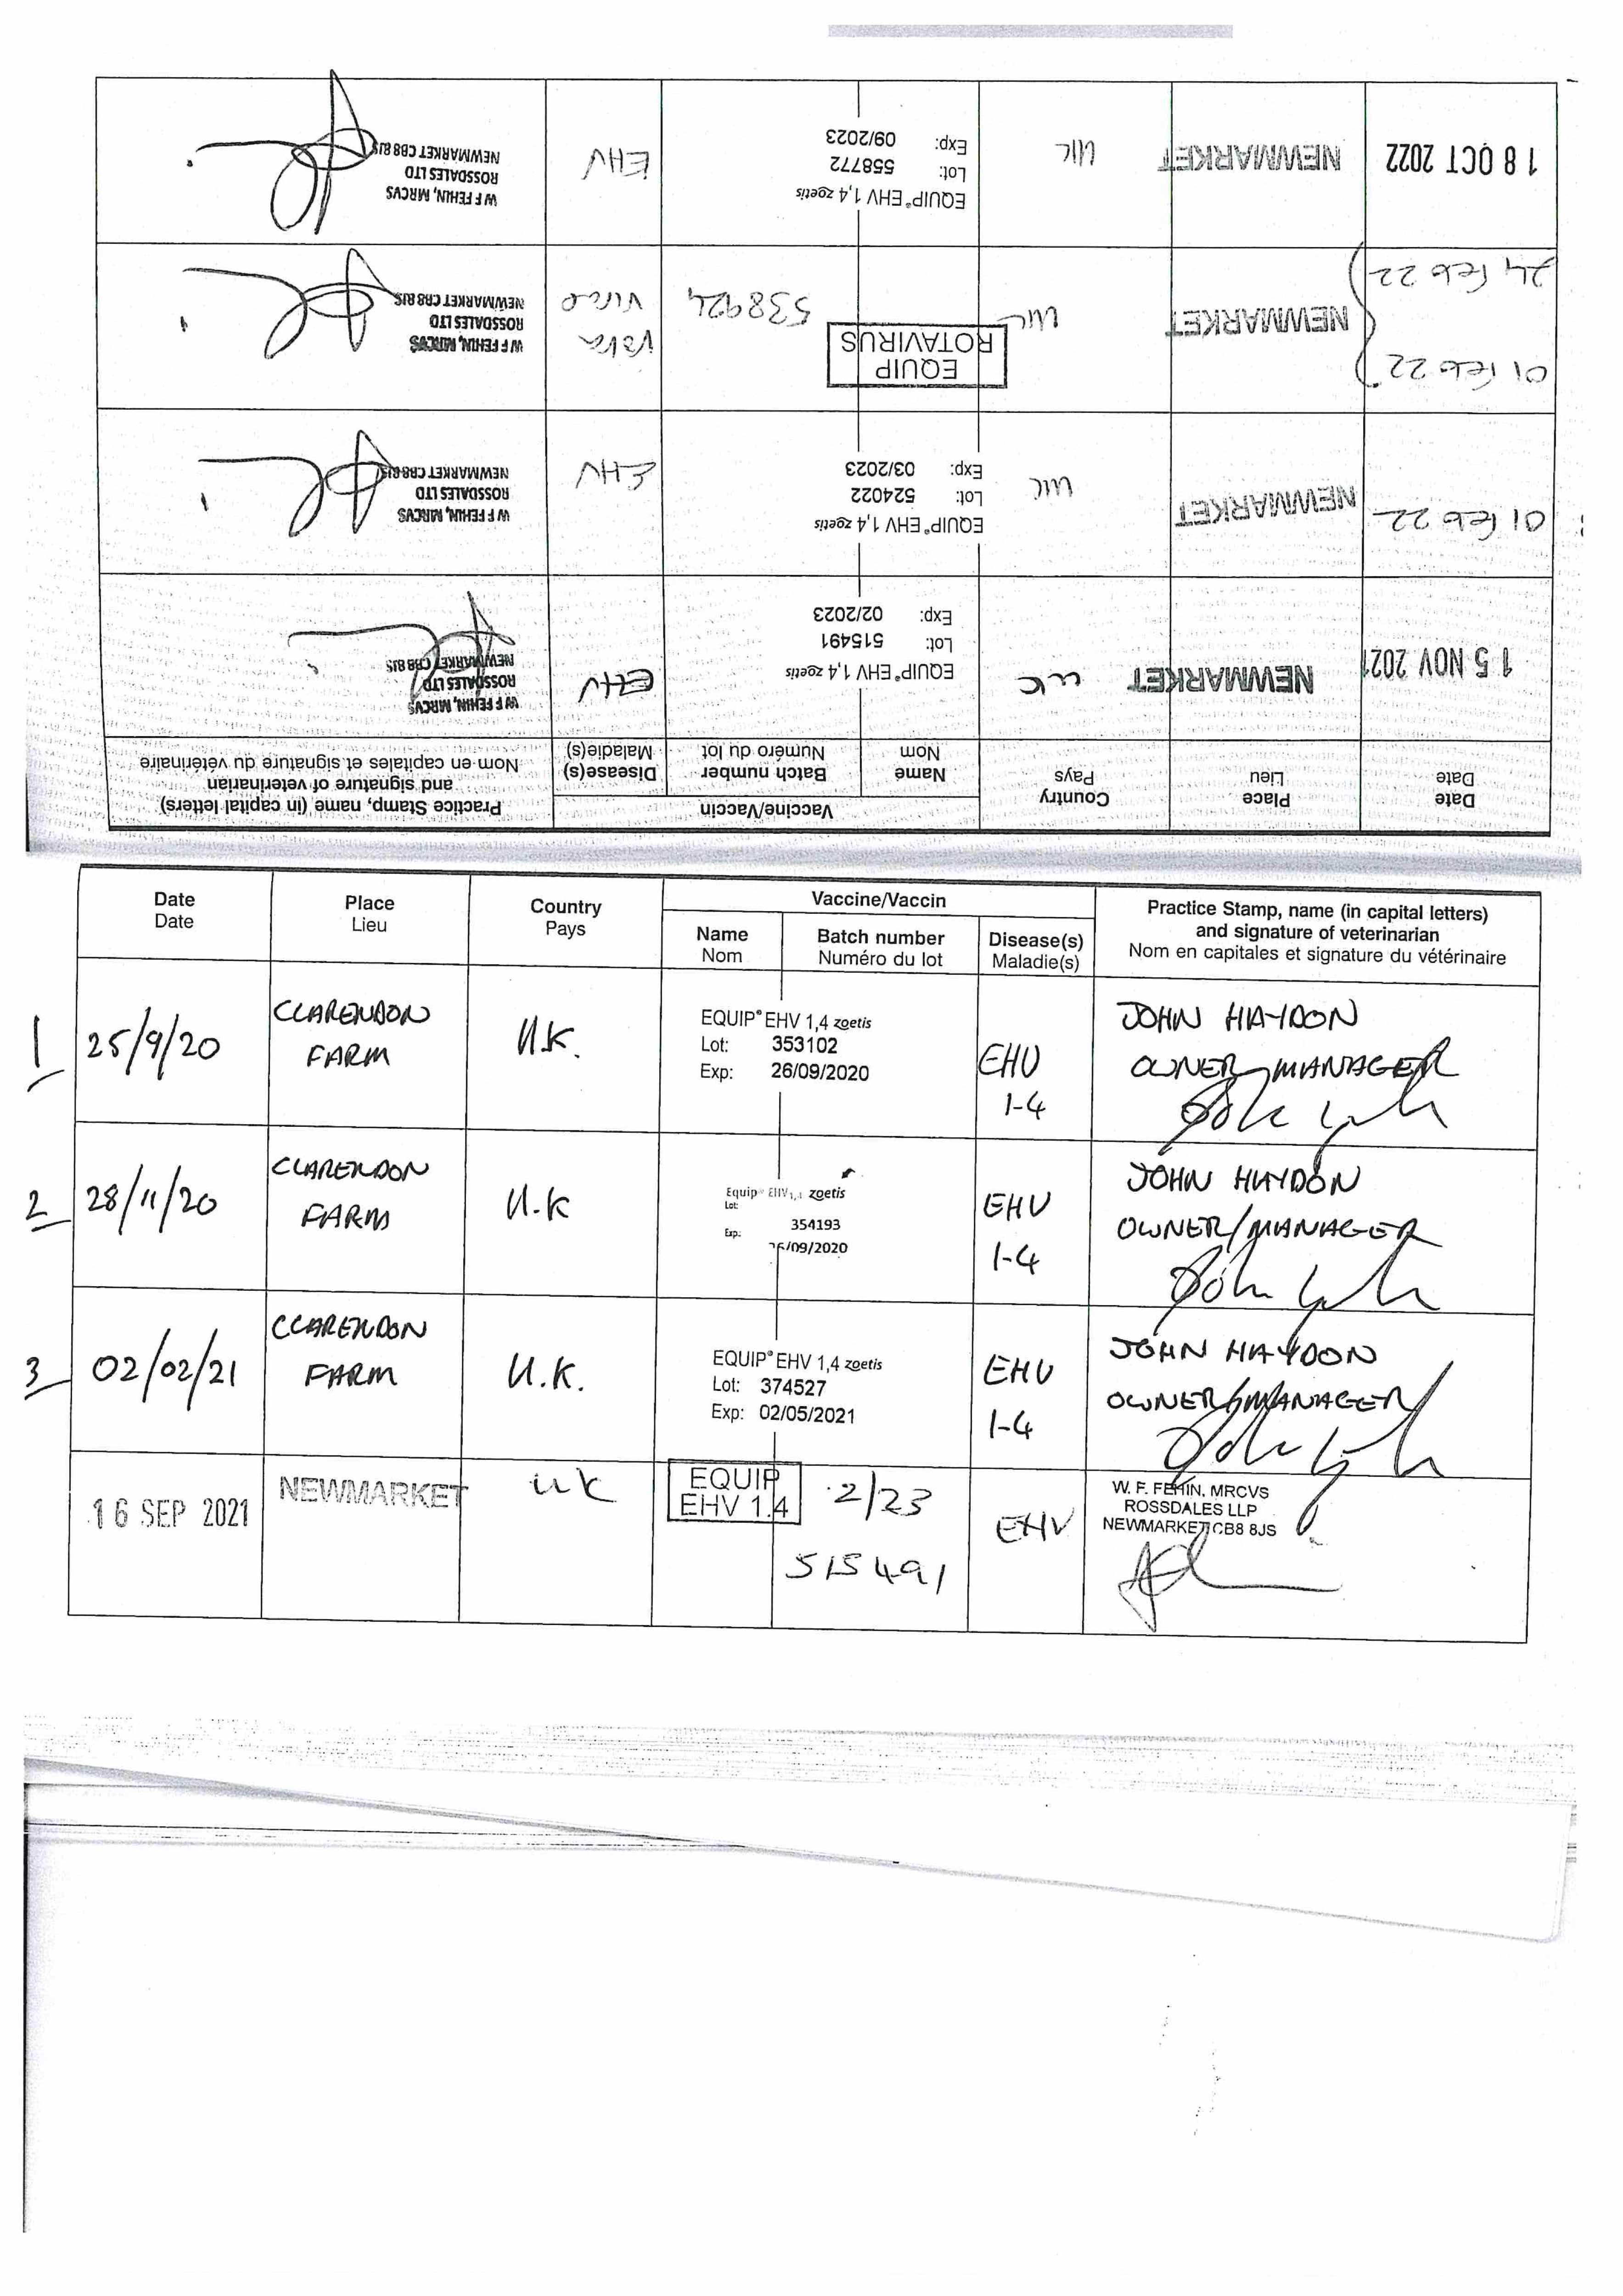 Date
Date
Place
Lieu
Country
Pays
Vaccine/Vaccin
Name
Nom
Batch number
Numéro du lot
Disease(s)
Maladie(s)
Practice Stamp, name (in capital letters)
and signature of veterinarian
Nom en capitales et signature du vétérinaire
15 NOV 2021
NEWMARKET
UK
EQUIP® EHV 1,4 zoetis
Lot: 515491
Exp: 02/2023
EHV
W F FEHIN, MRCVS
ROSSDALES LTD
NEWMARKET CB8 8JS
01 Feb 22
NEWMARKET
UK
EQUIP® EHV 1,4 zoetis
Lot: 524022
Exp: 03/2023
EHV
W F FEHIN, MRCVS
ROSSDALES LTD
NEWMARKET CB8 8JS
01 Feb 22
24 Feb 22
NEWMARKET
UK
EQUIP
ROTAVIRUS
538924
W F FEHIN, MRCVS
ROSSDALES LTD
NEWMARKET CB8 8JS
18 OCT 2022
NEWMARKET
UK
EQUIP® EHV 1,4 zoetis
Lot: 558772
Exp: 09/2023
EHV
W F FEHIN, MRCVS
ROSSDALES LTD
NEWMARKET CB8 8JS
Date
Date
Place
Lieu
Country
Pays
Vaccine/Vaccin
Name
Nom
Batch number
Numéro du lot
Disease(s)
Maladie(s)
Practice Stamp, name (in capital letters)
and signature of veterinarian
Nom en capitales et signature du vétérinaire
1
25/9/20
CLARENDON
FARM
U.K.
EQUIP® EHV 1,4 zoetis
Lot: 353102
Exp: 26/09/2020
EHV
1-4
JOHN HAYDON
OWNER/MANAGER
2
28/11/20
CLARENDON
FARM
U.K
Equip® EHV 1,4 zoetis
Lot:
354193
Exp:
/09/2020
EHV
1-4
JOHN HAYDON
OWNER/MANAGER
3
02/02/21
CLARENDON
FARM
U.K.
EQUIP® EHV 1,4 zoetis
Lot: 374527
Exp: 02/05/2021
EHV
1-4
JOHN HAYDON
OWNER/MANAGER
16 SEP 2021
NEWMARKET
UK
EQUIP
EHV 1.4
2/23
515491
EHV
W. F. FEHIN. MRCVS
ROSSDALES LLP
NEWMARKET CB8 8JS